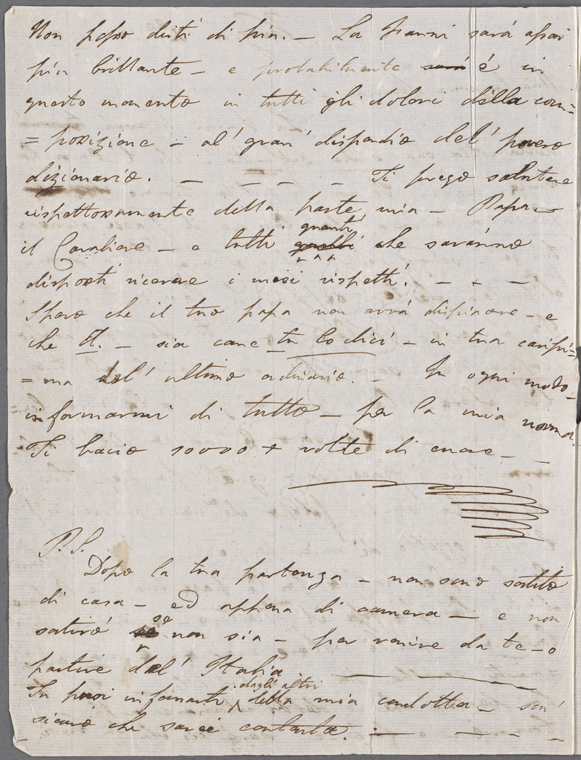 Non posso dirti di piu. — La Fanni sarà assai
più brillante — e probabilmente sarà è in
questo momento in tutti gli dolori della com=
=posizione — al' gran' dispendio del' povero
dizionario. — — — — Ti prego salutare
rispettosamente della parte mia — Papa —
il Cavaliere — e tutti quelli quanti che saranno
disposti ricevere i miei rispetti. — — —
Spero che il tuo papa non avrà dispiacere — e
che — sia come tu lo dici — in tua carissi=
=ma del' ultimo ordinario. — In ogni modo —
informarmi di tutto — per la mia norma.
Ti bacio 10000 + volte di cuore — —
P.S.
Dopo la tua partenza — non sono sortito
di casa — ed appena di camera — e non
sortirò se se non sia — per venire da te — o
partire dal' Italia
Tu puoi informarti dagli altri della mia condotta — son'
sicuro che sarai contenta. — — — —